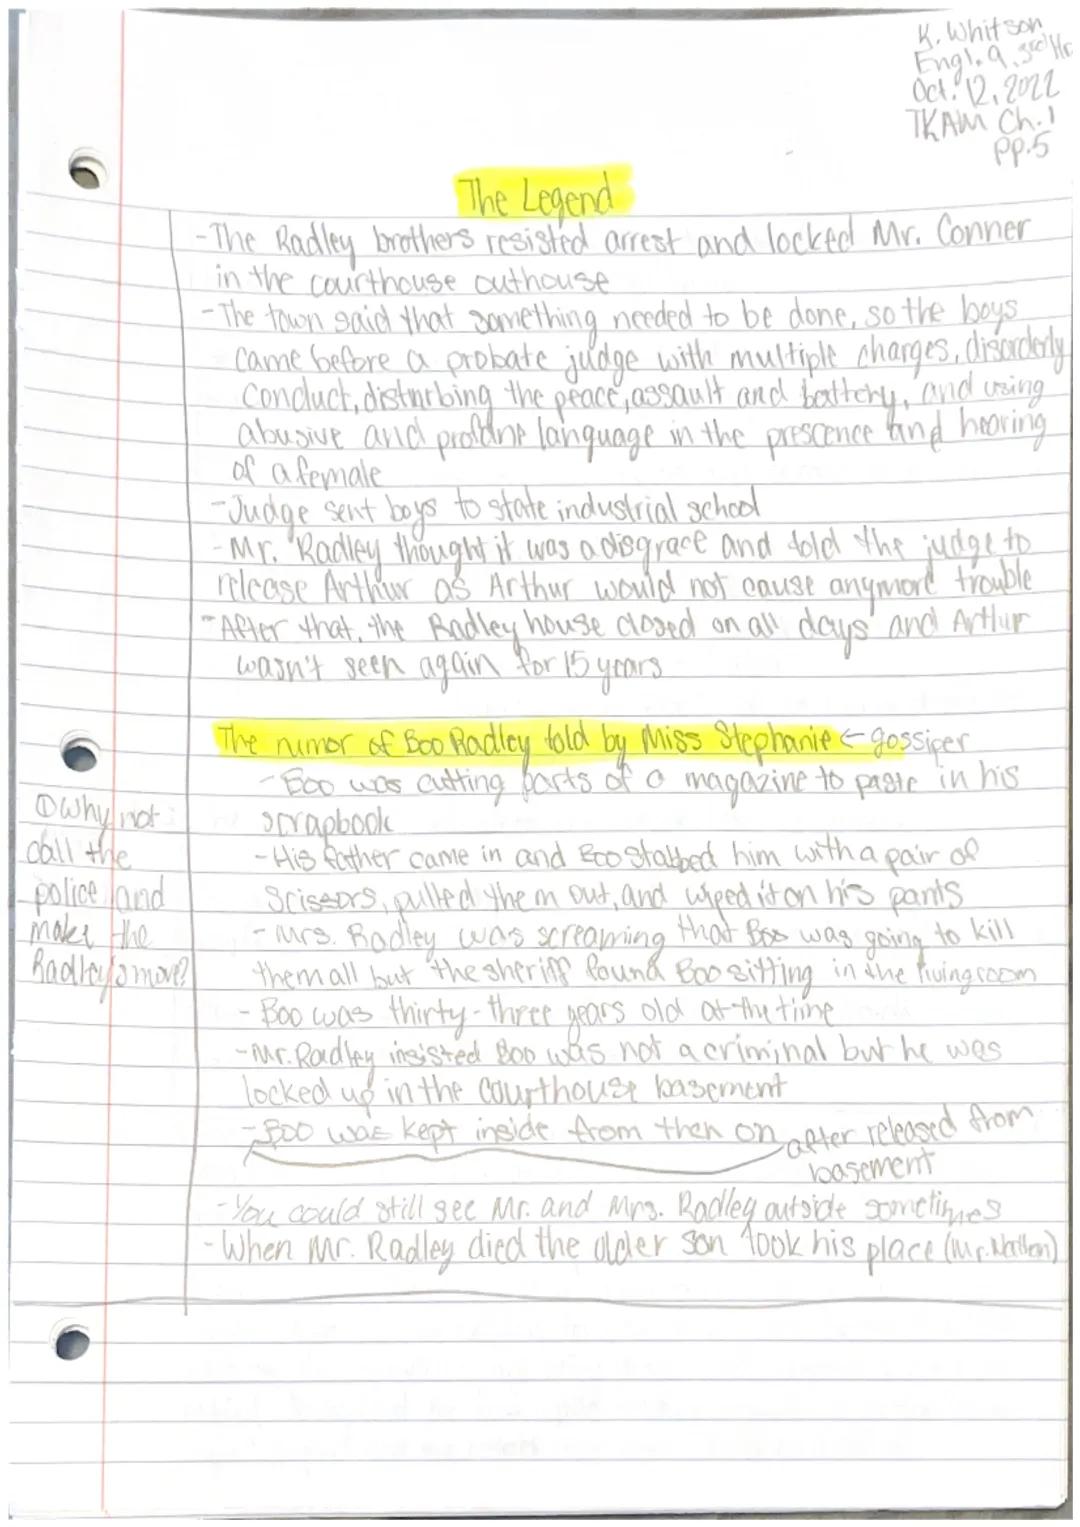 K. Whitson
Engl. 9, 3rd Hr
Oct. 12, 2022
TKAM Ch. 1
pp. 5
The Legend
-The Radley brothers resisted arrest and locked Mr. Conner
in the courthouse outhouse
-The town said that something needed to be done, so the boys
came before a probate judge with multiple charges, disorderly
conduct, disturbing the peace, assault and battery, and using
abusive and profane language in the prescence and hearing
of a female
-Judge sent boys to state industrial school
-Mr. Radley thought it was a disgrace and told the judge to
release Arthur as Arthur would not cause anymore trouble
-After that, the Radley house closed on all days and Arthur
wasn't seen again for 15 years
The rumor of Boo Radley told by Miss Stephanie ← gossiper
-Boo was cutting parts of a magazine to paste in his
scrapbook
-His father came in and Boo stabbed him with a pair of
scissors, pulled them out, and wiped it on his pants
-Mrs. Radley was screaming that Boo was going to kill
them all but the sheriff found Boo sitting in the livingroom
-Boo was thirty-three years old at the time
-Mr. Radley insisted Boo was not a criminal but he was
locked up in the courthouse basement
-Boo was kept inside from then on, after released from
basement
-You could still see Mr. and Mrs. Radley outside sometimes
-When Mr. Radley died the older son took his place (Mr. Nathan)
① Why not
call the
police and
make the
Radley's move?